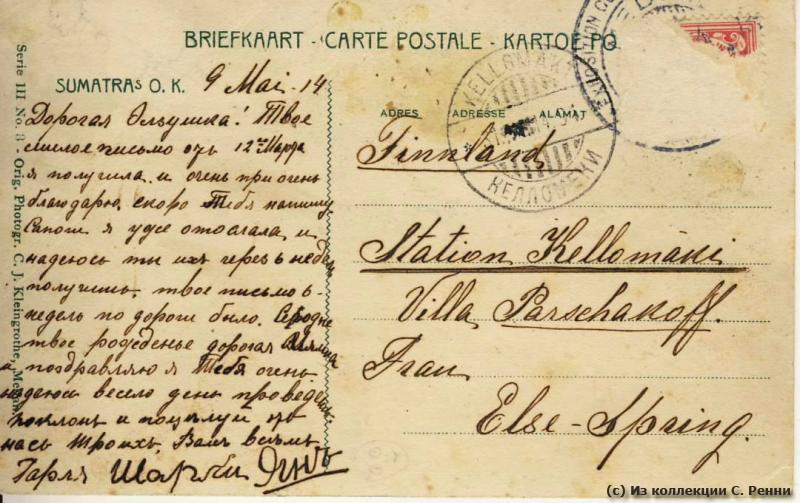 BRIEFKAART - CARTE POSTALE - KARTOE PO
SUMATRAS O. K.
9 Mai. 14
Дорогая Ольушка! Твое
милое письмо отъ 12го Марта
я получила и очень при очень
благодарю, скоро Тебя напишу
Сапоги я уже отослала, и
надеюсь ты ихъ через 6 недель
получишь, твое письмо 6-
недель по дороги было.
твое рожденье дорогая
и поздравляю я Тебя очень
надеюсь весело день проведешь.
поклонъ и поцелуй отъ
насъ троихъ, Вамъ всемъ
Гарля Шарли
ADRES ADRESSE ALAMAT
Finnland
Station Kellomäki
Villa Parschakoff.
Frau
Else-Spring.
KELLOMÄKI
КЕЛЛОМЯКИ
EXPOSITION CO
Serie III No. - Orig. Photogr. C. J. Kleingrothe, Medan
(c) Из коллекции С. Ренни